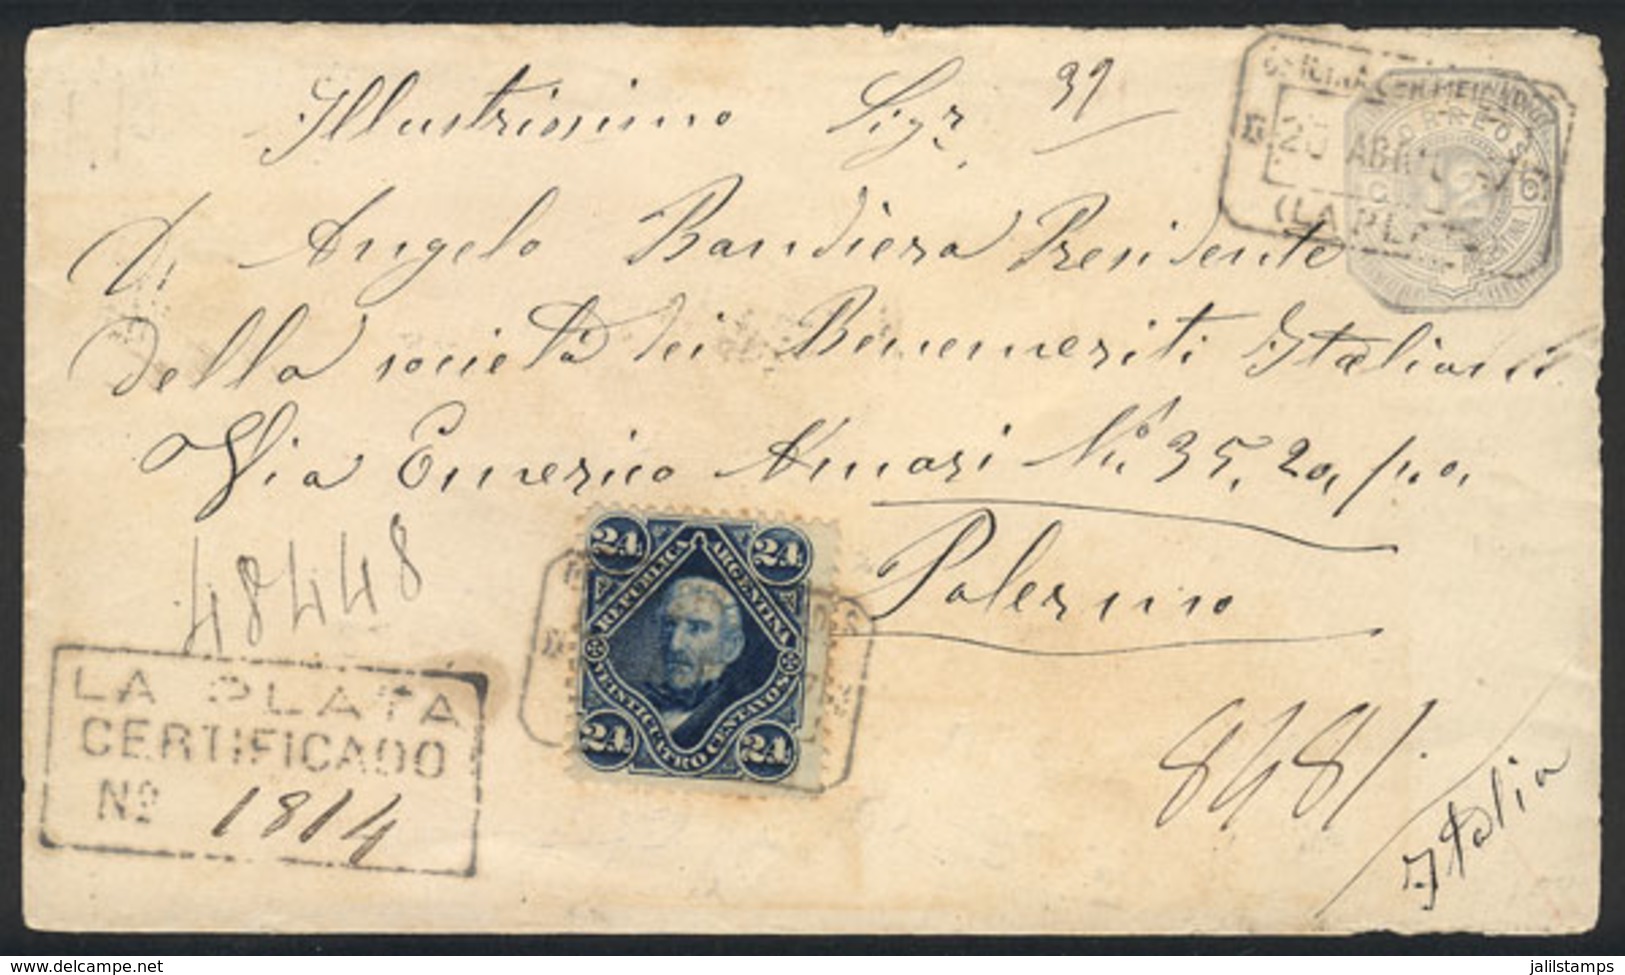 Illustrissimo Sigr. 39
D. Angelo Bandiera Presidente
della società dei Benemeriti Italiani
Via Emerico Amari No. 35, 2o, p.o,
Palermo
Italia
48448
8481
LA PLATA
CERTIFICADO
No 1814
24 24
REPUBLICA ARGENTINA
VEINTICUATRO CENTAVOS
24 24
CORREOS
12
ABR
(LA PLATA
delcampe.net
jalilstamps